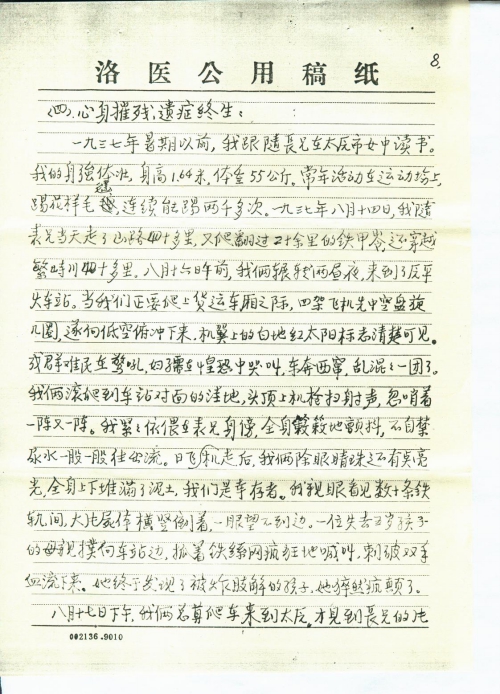 8.
洛医公用稿纸
(四).心身摧残,遗症终生:
一九三七年暑期以前,我跟随長兄在太原市女中读书。
我的身强体壮,身高1.64米,体重55公斤。常年活动在运动埸上,
踢花样毛毽,连续能踢两千多次。一九三七年八月十四日,我随
表兄当天走了山路40十多里,又爬翻过二十余里的铁甲岺,还穿越
繁峙川40十多里。八月十六日午前,我俩辗转两昼夜,来到了原平
火车站。当我们正要爬上货运车厢之际,四架飞机先中空盘旋
几圈,遂向低空俯冲下来,机翼上的白地红太阳标志清楚可见。
成群难民在嚎吼,妇孺在惶恐中哭叫,东奔西窜,乱混在一团了。
我俩滚爬到车站对面的洼地,头顶上机枪扫射声,忽哨着
一阵又一阵。我紧紧依偎在表兄身傍,全身簌簌地颤抖,不自禁
尿水一股一股往出流。日飞机走后,我俩除眼睛珠还有点亮
光,全身上下堆满了泥土,我们是幸存者。我亲眼看见数十条铁
轨间,大片屍体横竖倒着,一眼望不到边。一位失去 岁孩子
的母親撲向车站边,抓着铁絲网疯狂地喊叫,刺破双手
血流下来。她终于发现了被炸肢解的孩子,她猝然疯颠了。
八月十七日下午,我俩总算爬车来到太原。才见到長兄的
002136.9010